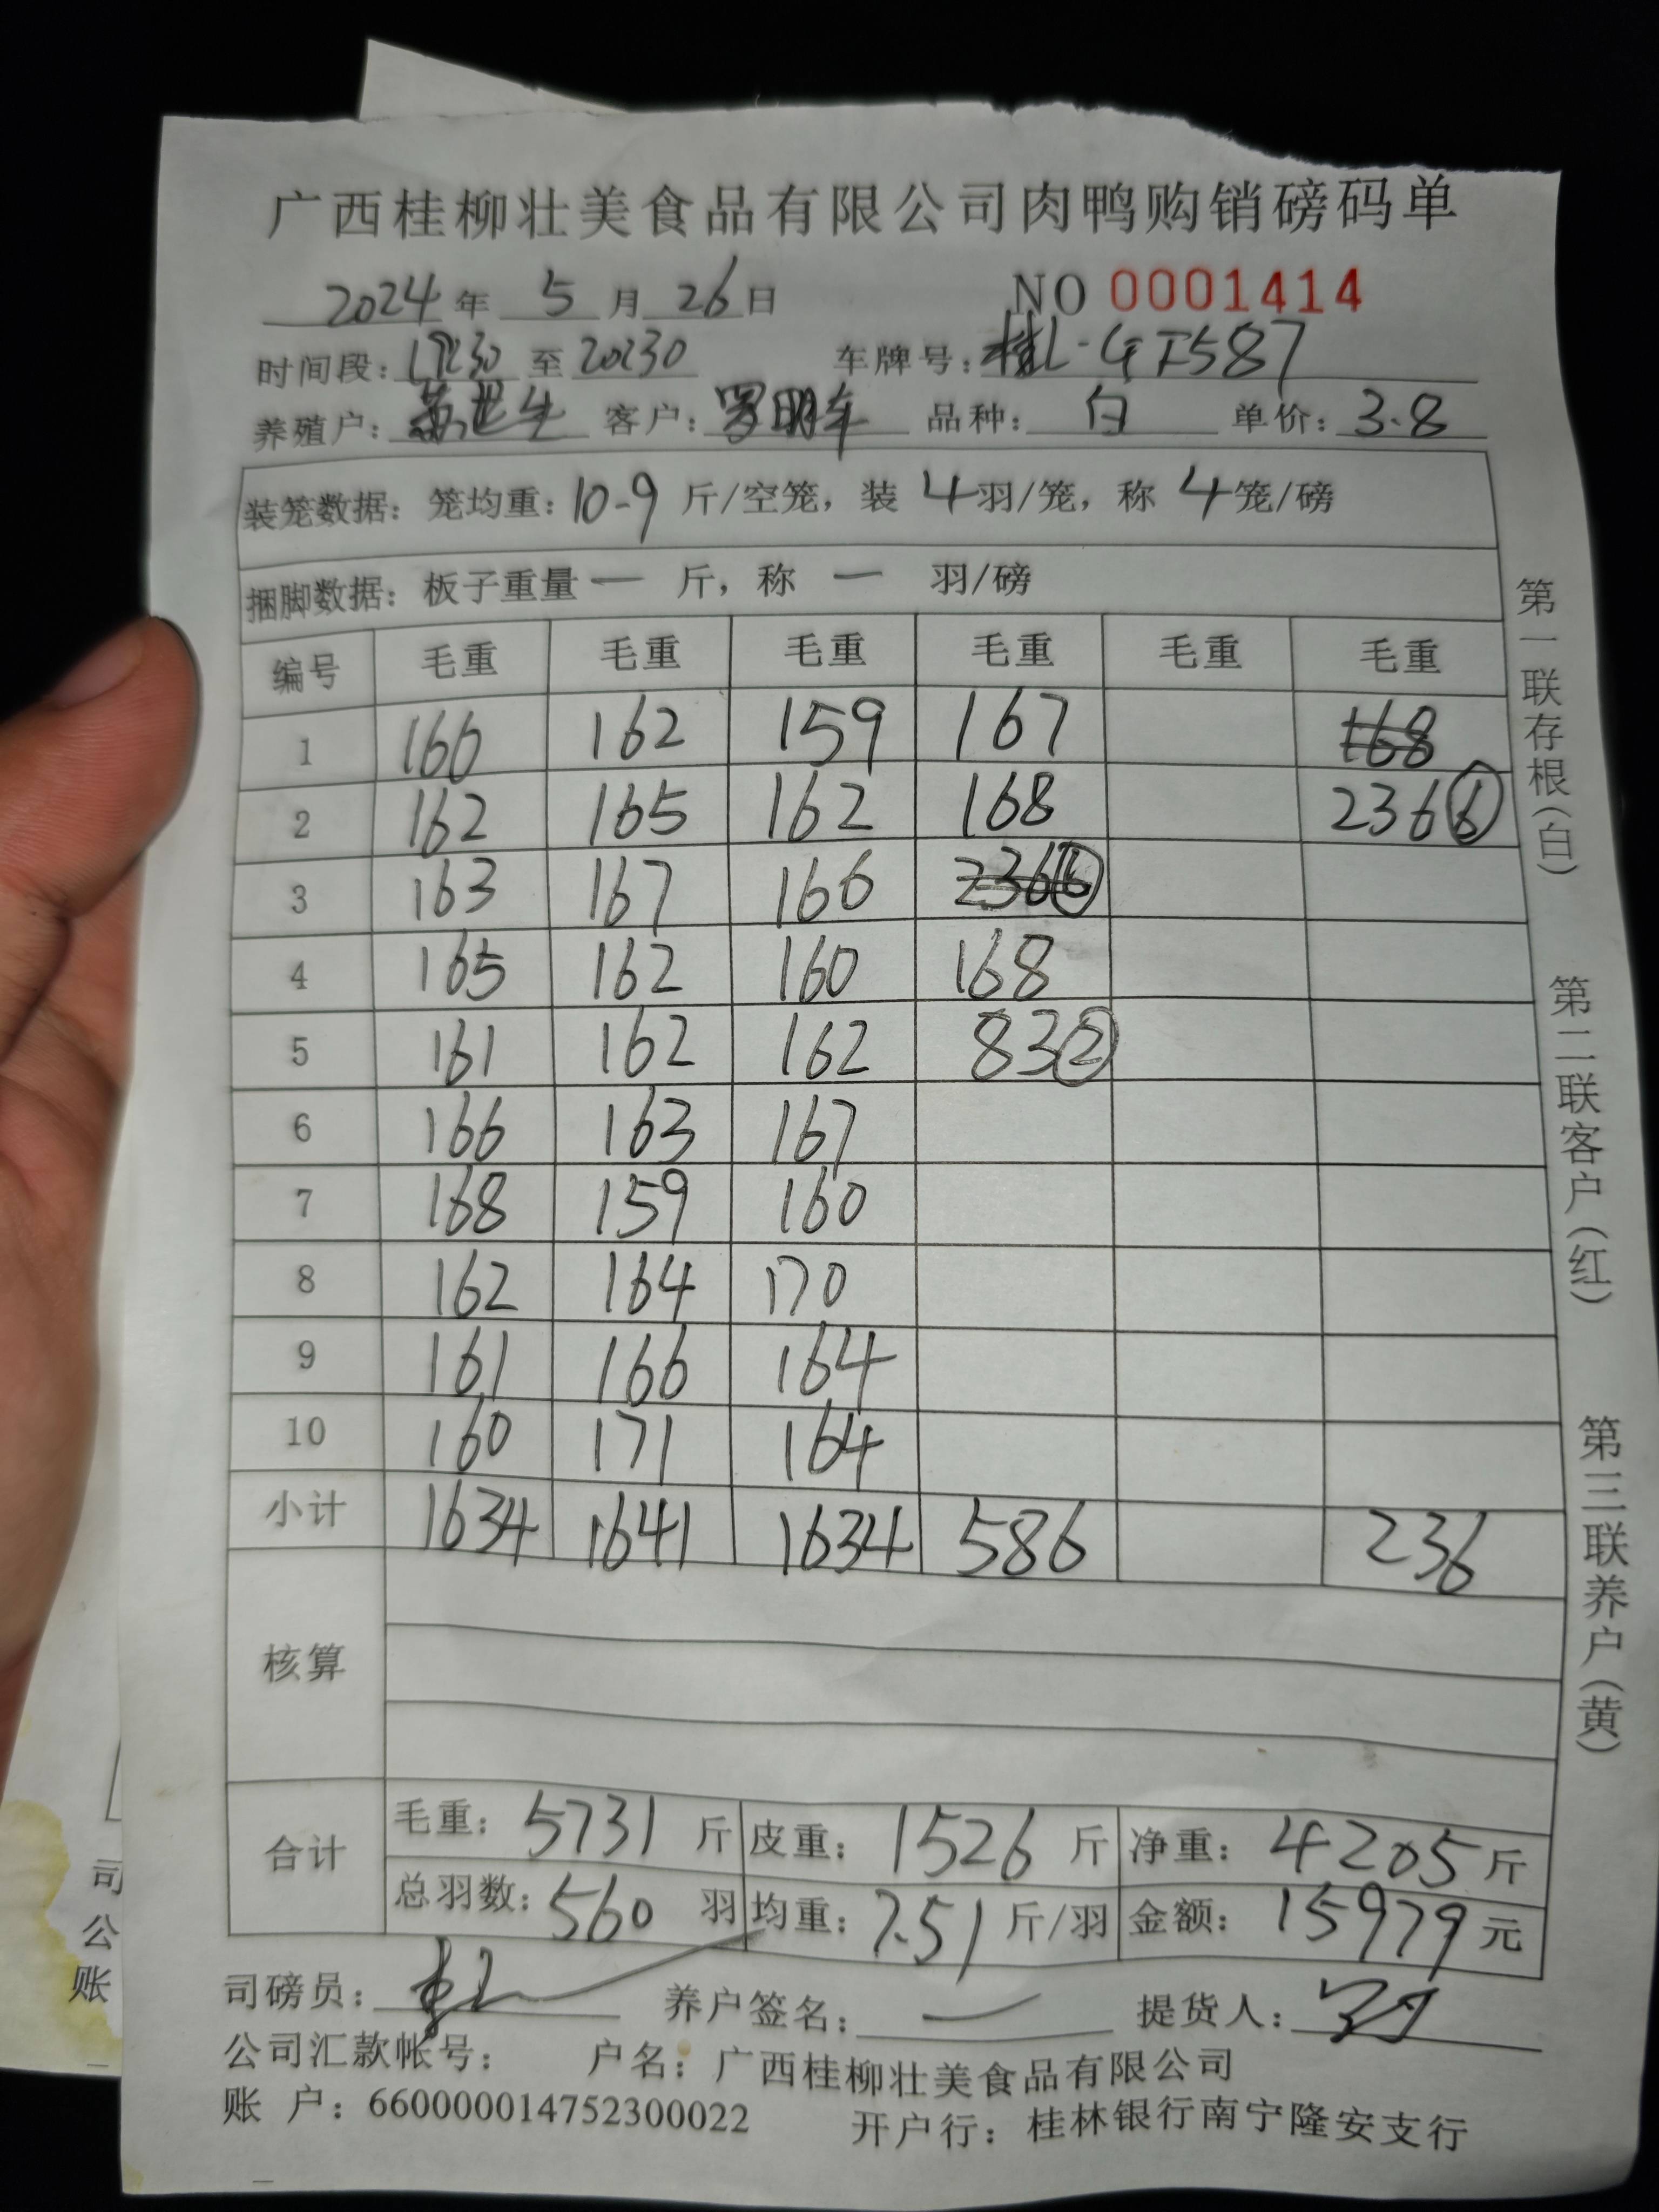 广西桂柳壮美食品有限公司肉鸭购销磅码单
2024 年 5 月 26 日 NO 0001414
时间段: 19:30 至 20:30 车牌号: 桂L-GT587
养殖户: 世生 客户: 罗明车 品种: 白 单价: 3.8
装笼数据: 笼均重: 10.9 斤/空笼, 装 4 羽/笼, 称 4 笼/磅
捆脚数据: 板子重量 一 斤, 称 一 羽/磅
编号 毛重 毛重 毛重 毛重 毛重 毛重
1 166 162 159 167 168
2 162 165 162 168 236 ⑥
3 163 167 166 236 ⑥
4 165 162 160 168
5 161 162 162 83 ②
6 166 163 167
7 168 159 160
8 162 164 170
9 161 166 164
10 160 171 164
小计 1634 1641 1634 586 236
核算
合计 毛重: 5731 斤 皮重: 1526 斤 净重: 4205 斤
总羽数: 560 羽 均重: 7.51 斤/羽 金额: 15979 元
司磅员: 养户签名: 一 提货人:
公司汇款帐号: 户名: 广西桂柳壮美食品有限公司
账 户: 660000014752300022 开户行: 桂林银行南宁隆安支行
第一联存根(白)
第二联客户(红)
第三联养户(黄)
司
公
账